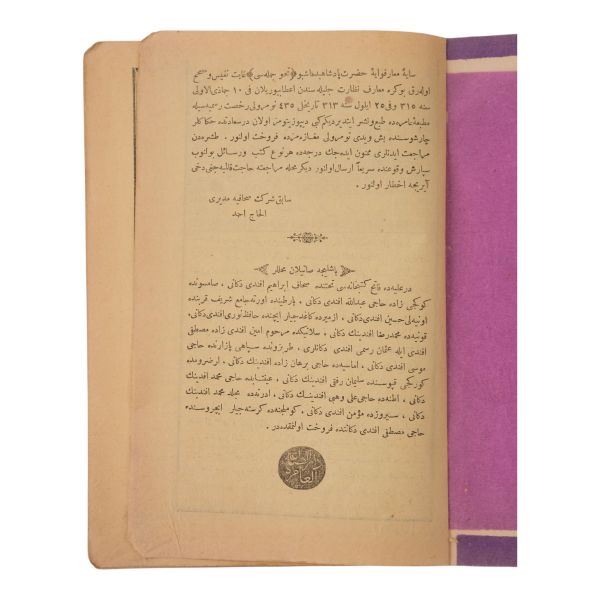 سایهٔ معارفوایهٔ حضرت پادشاهیده اشبو ﴿نحو جمله سی﴾ غایت نفیس و مصحح
اوله رق بو کره معارف نظارت جلیله سندن اعطا بیوریلان فی ١٠ جماذی الاولی
سنه ٣١٥ وفی ٢٥ ایلول سنه ٣١٣ تاریخلی ٤٣٥ نومرولی رخصت رسمیه سیله
مطبعهٔ عامره ده طبع ونشر ایتدیردیکم کبی دیپوزیتومز اولان درسعادتده حکاکلر
چارشوسنده بش ویدی نومرولی مغازه مزده فروخت اولنور . طشره دن
مراجعت ایدنلری ممنون ایده جك درجه ده هر نوع کتب ورسائل بولنوب
سپارش وقوعنده سریعاً ارسال اولنور دیکر محله مراجعته حاجت قالمیه جغی دخی
آیریجه اخطار اولنور .
سابق شرکت صحافیه مدیری
الحاج احمد
﴿ باشلیجه صاتیلان محللر ﴾
درعلیه ده فاتح کتبخانه سی تحتنده صحاف ابراهیم افندی دکانی ، صامسونده
زاده حاجی عبدالله افندی دکانی ، بارطینده اورته جامع شریف قربنده
حسین افندی دکانی ، ازمیرده کاغدجیلر ایچنده حافظ نوری افندی دکانی .
قونیه ده محمد رضا افندینك دکانی ، سلانیکده مرحوم امین افندی زاده مصطفی
افندی ایله عثمان رسمی افندی دکانلری ، طربزونده سپاهی پازارنده حاجی
موسی افندی دکانی ، اماسیه ده حاجی برهان زاده افندی دکانی ، ارضرومده
کورکجی قپوسنده سلیمان رفقی افندینك دکانی ، عینتابده حاجی محمد افندینك
دکانی ، اطنه ده حاجی علی وهبی افندینك دکانی ، ادرنه ده مجلد محمد افندینك
دکانی ، سیروزده مؤمن افندی دکانی ، کوملجنه ده کرسته جیلر ایچروسنده
حاجی مصطفی افندی دکاننده فروخت اولنمقده در .
دار الطباعة
العامره